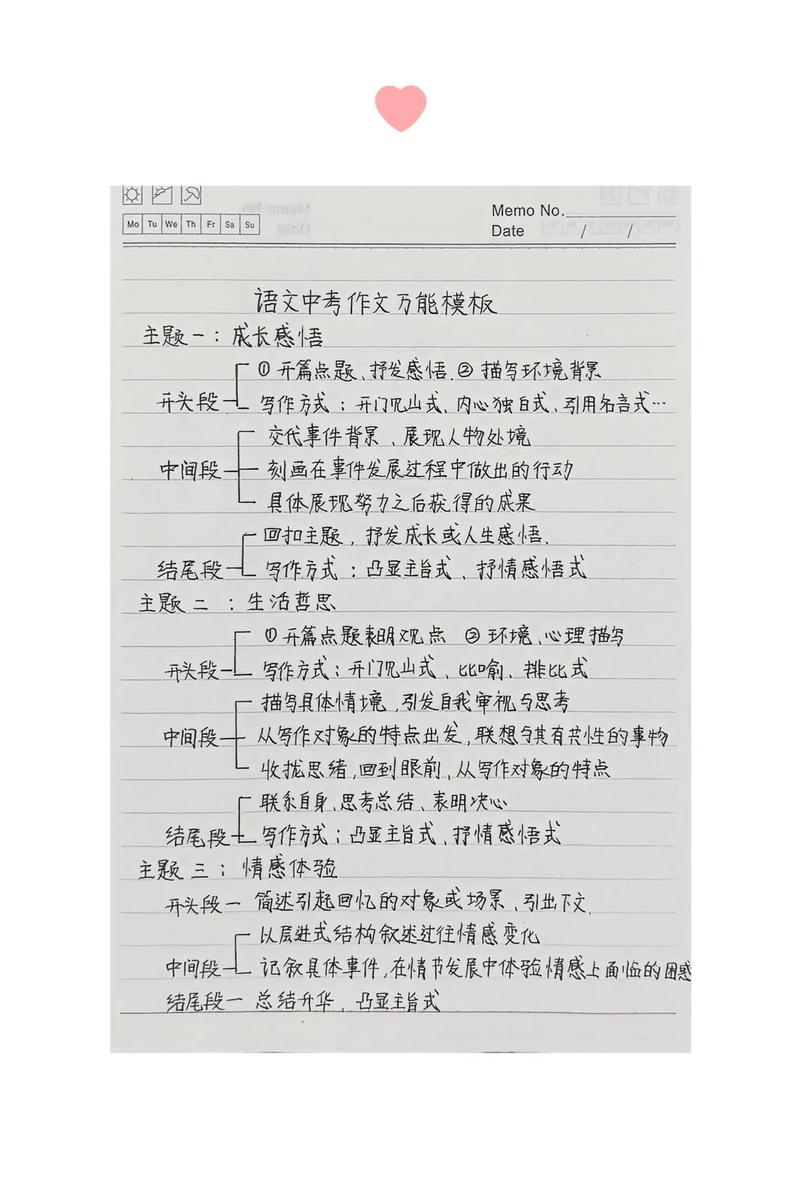 Memo No.
Mo Tu We Th Fr Sa Su
Date / /
语文中考作文万能模板
主题一：成长感悟
①开篇点题、抒发感悟.②描写环境背景
开头段
写作方式：开门见山式、内心独白式、引用名言式…
交代事件背景、展现人物处境
中间段
刻画在事件发展过程中做出的行动
具体展现努力之后获得的成果
回扣主题，抒发成长或人生感悟、
结尾段
写作方式：凸显主旨式、抒情感悟式
主题二：生活哲思
①开篇点题表明观点 ②环境、心理描写
开头段
写作方式：开门见山式、比喻、排比式
描写具体情境，引发自我审视与思考
中间段
从写作对象的特点出发，联想与其有共性的事物
收拢思绪，回到眼前，从写作对象的特点
联系自身、思考总结、表明决心
结尾段
写作方式：凸显主旨式、抒情感悟式
主题三：情感体验
开头段一 简述引起回忆的对象或场景、引出下文.
以层进式结构叙述过往情感变化
中间段
记叙具体事件，在情节发展中体验情感上面临的困惑
结尾段一 总结升华、凸显主旨式